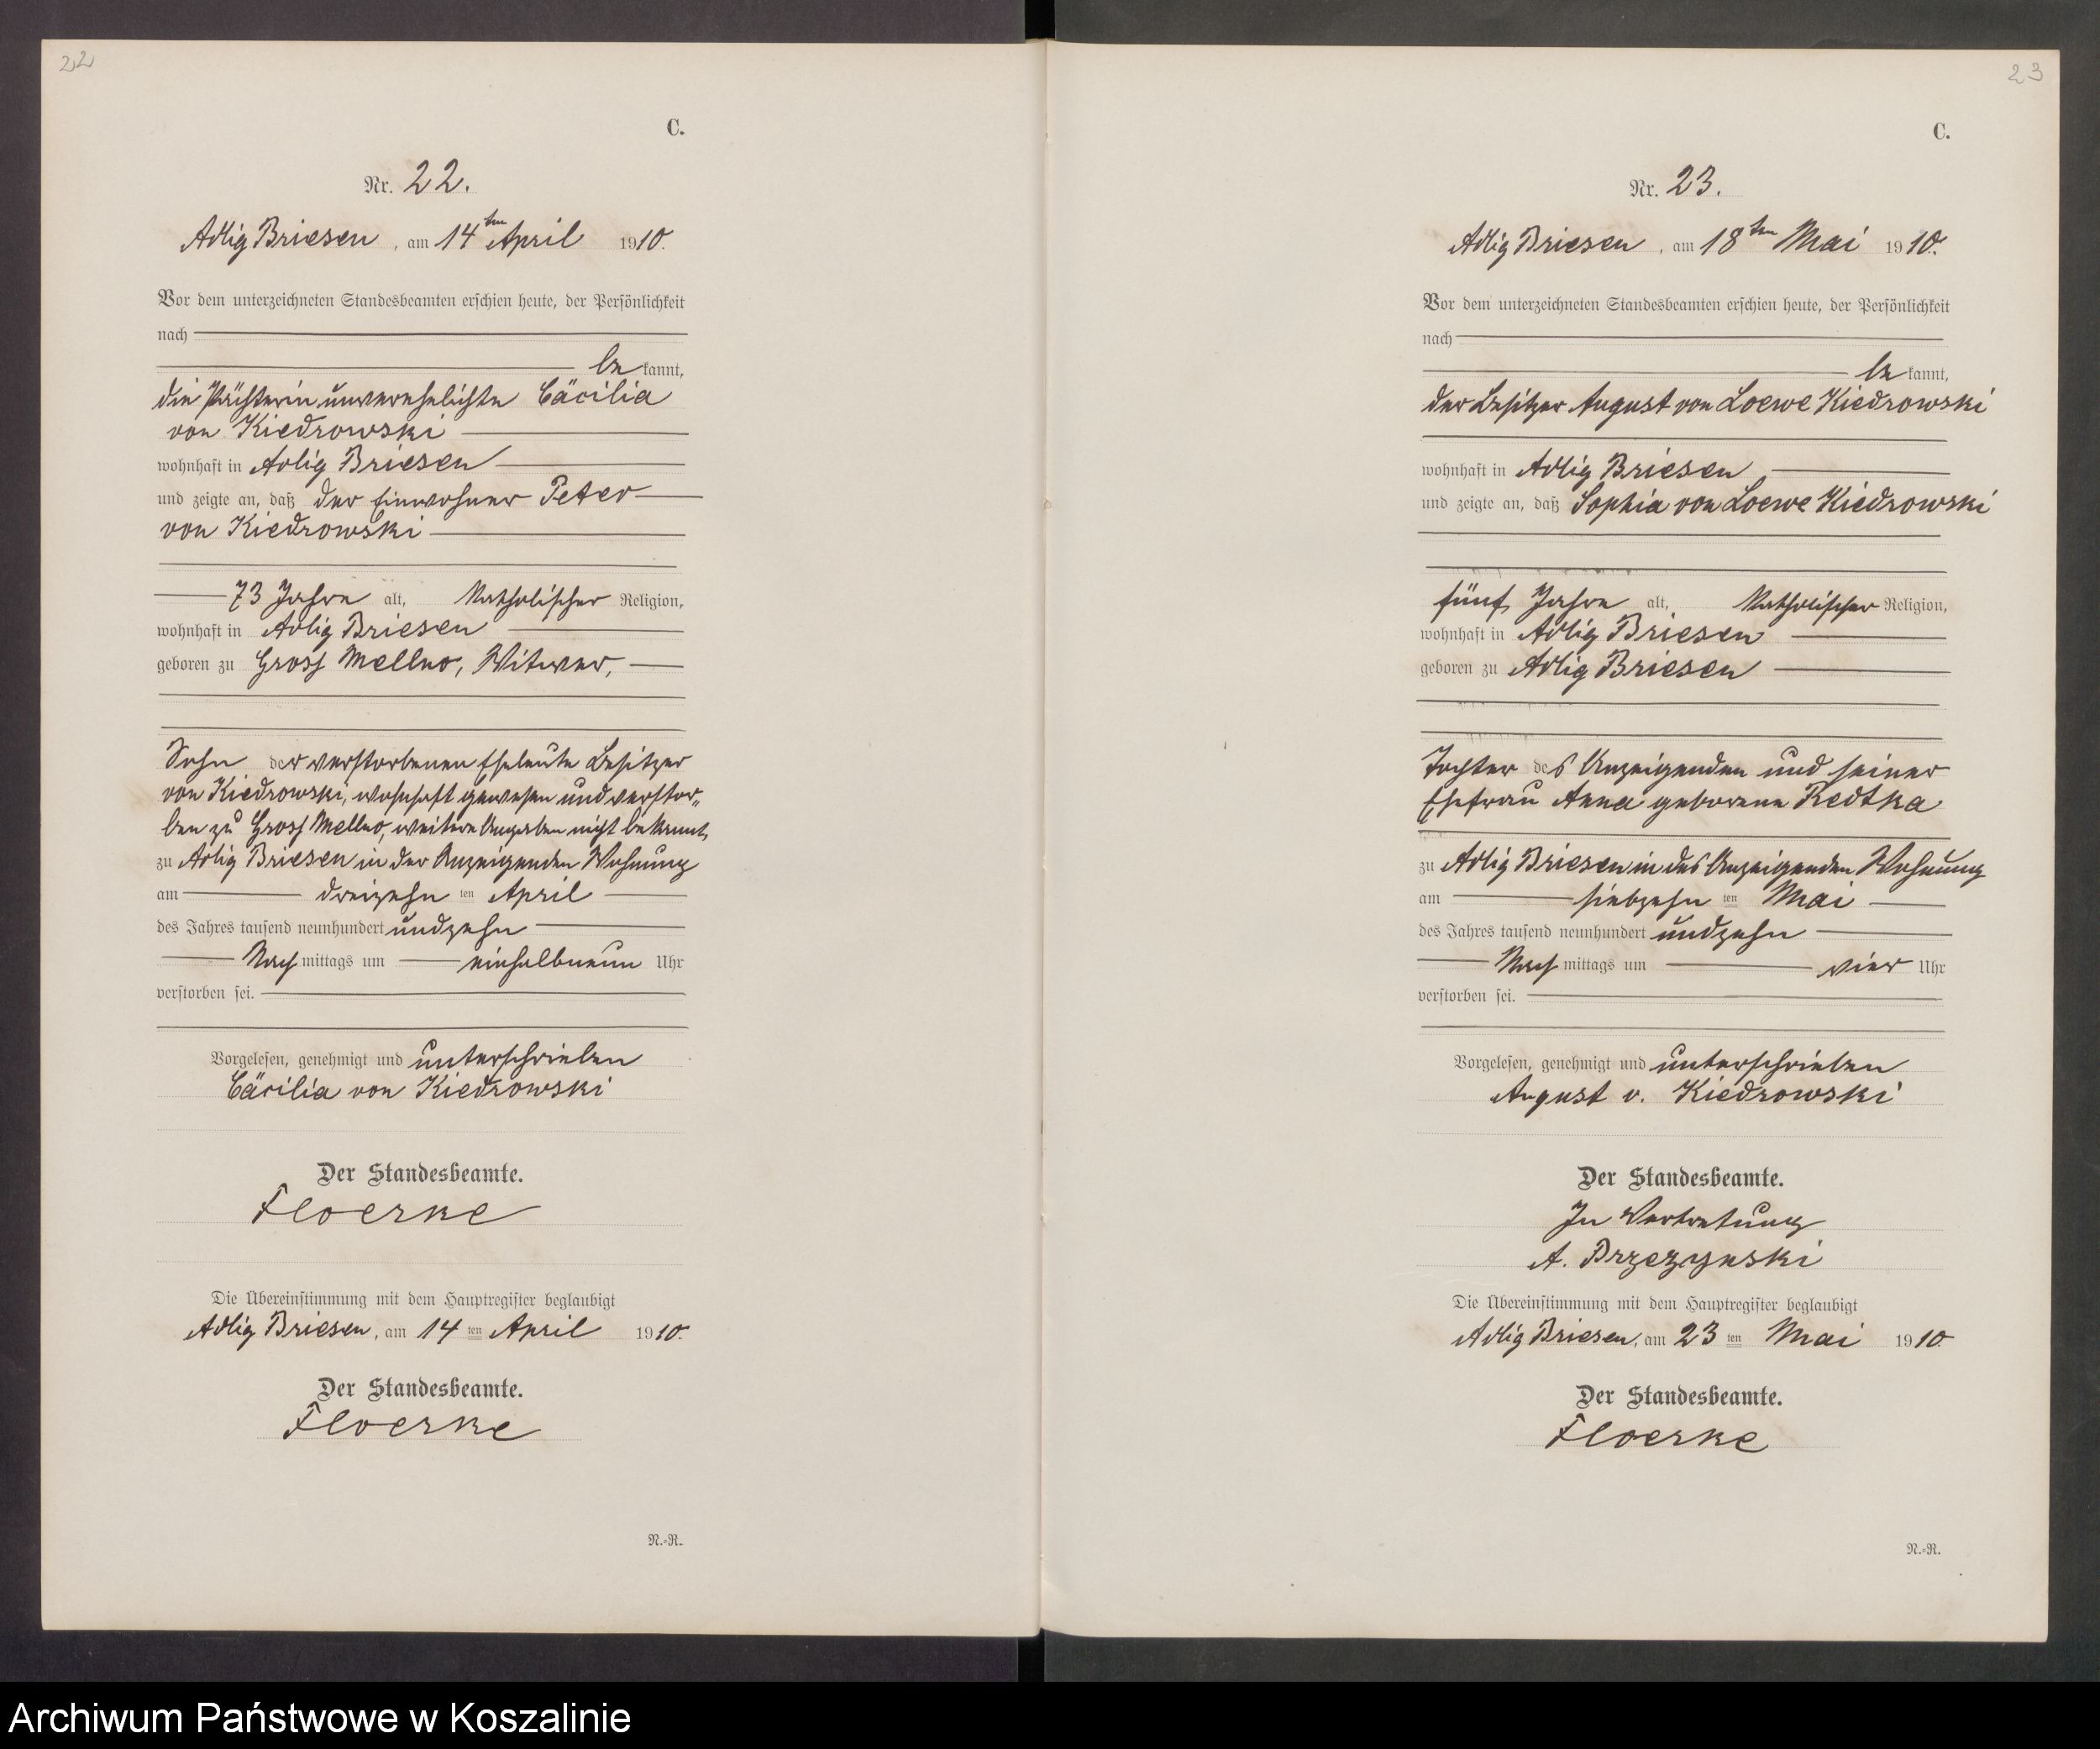 22
C.
Nr. 22.
Adlig Briesen, am 14ten April 1910.
Vor dem unterzeichneten Standesbeamten erschien heute, der Persönlichkeit
nach
be kannt,
die Pächterin unverehelichte Cäcilia
von Kiedrowski
wohnhaft in Adlig Briesen
und zeigte an, daß der Einwohner Peter
von Kiedrowski
73 Jahre alt, Katholischer Religion,
wohnhaft in Adlig Briesen
geboren zu Gross Mellno, Witwer,
Sohn der verstorbenen Eheleute Besitzer
von Kiedrowski, wohnhaft gewesen und verstor„
ben zu Gross Mellno, weitere Angaben nicht bekannt,
zu Adlig Briesen in der Anzeigenden Wohnung
am dreizehn ten April
des Jahres tausend neunhundert undzehn
Nach mittags um einhalbneun Uhr
verstorben sei.
Vorgelesen, genehmigt und unterschrieben
Cäcilia von Kiedrowski
Der Standesbeamte.
Floerke
Die Übereinstimmung mit dem Hauptregister beglaubigt
Adlig Briesen, am 14 ten April 1910.
Der Standesbeamte.
Floerke
N.-R.
23
C.
Nr. 23.
Adlig Briesen, am 18ten Mai 1910.
Vor dem unterzeichneten Standesbeamten erschien heute, der Persönlichkeit
nach
be kannt,
der Besitzer August von Loewe Kiedrowski
wohnhaft in Adlig Briesen
und zeigte an, daß Sophia von Loewe Kiedrowski
fünf Jahre alt, Katholischer Religion,
wohnhaft in Adlig Briesen
geboren zu Adlig Briesen
Tochter des Anzeigenden und seiner
Ehefrau Anna geborene Redtka
zu Adlig Briesen in des Anzeigenden Wohnung
am siebzehn ten Mai
des Jahres tausend neunhundert undzehn
Nach mittags um vier Uhr
verstorben sei.
Vorgelesen, genehmigt und unterschrieben
August v. Kiedrowski
Der Standesbeamte.
In Vertretung
A. Brzezynski
Die Übereinstimmung mit dem Hauptregister beglaubigt
Adlig Briesen, am 23 ten Mai 1910
Der Standesbeamte.
Floerke
N.-R.
Archiwum Państwowe w Koszalinie